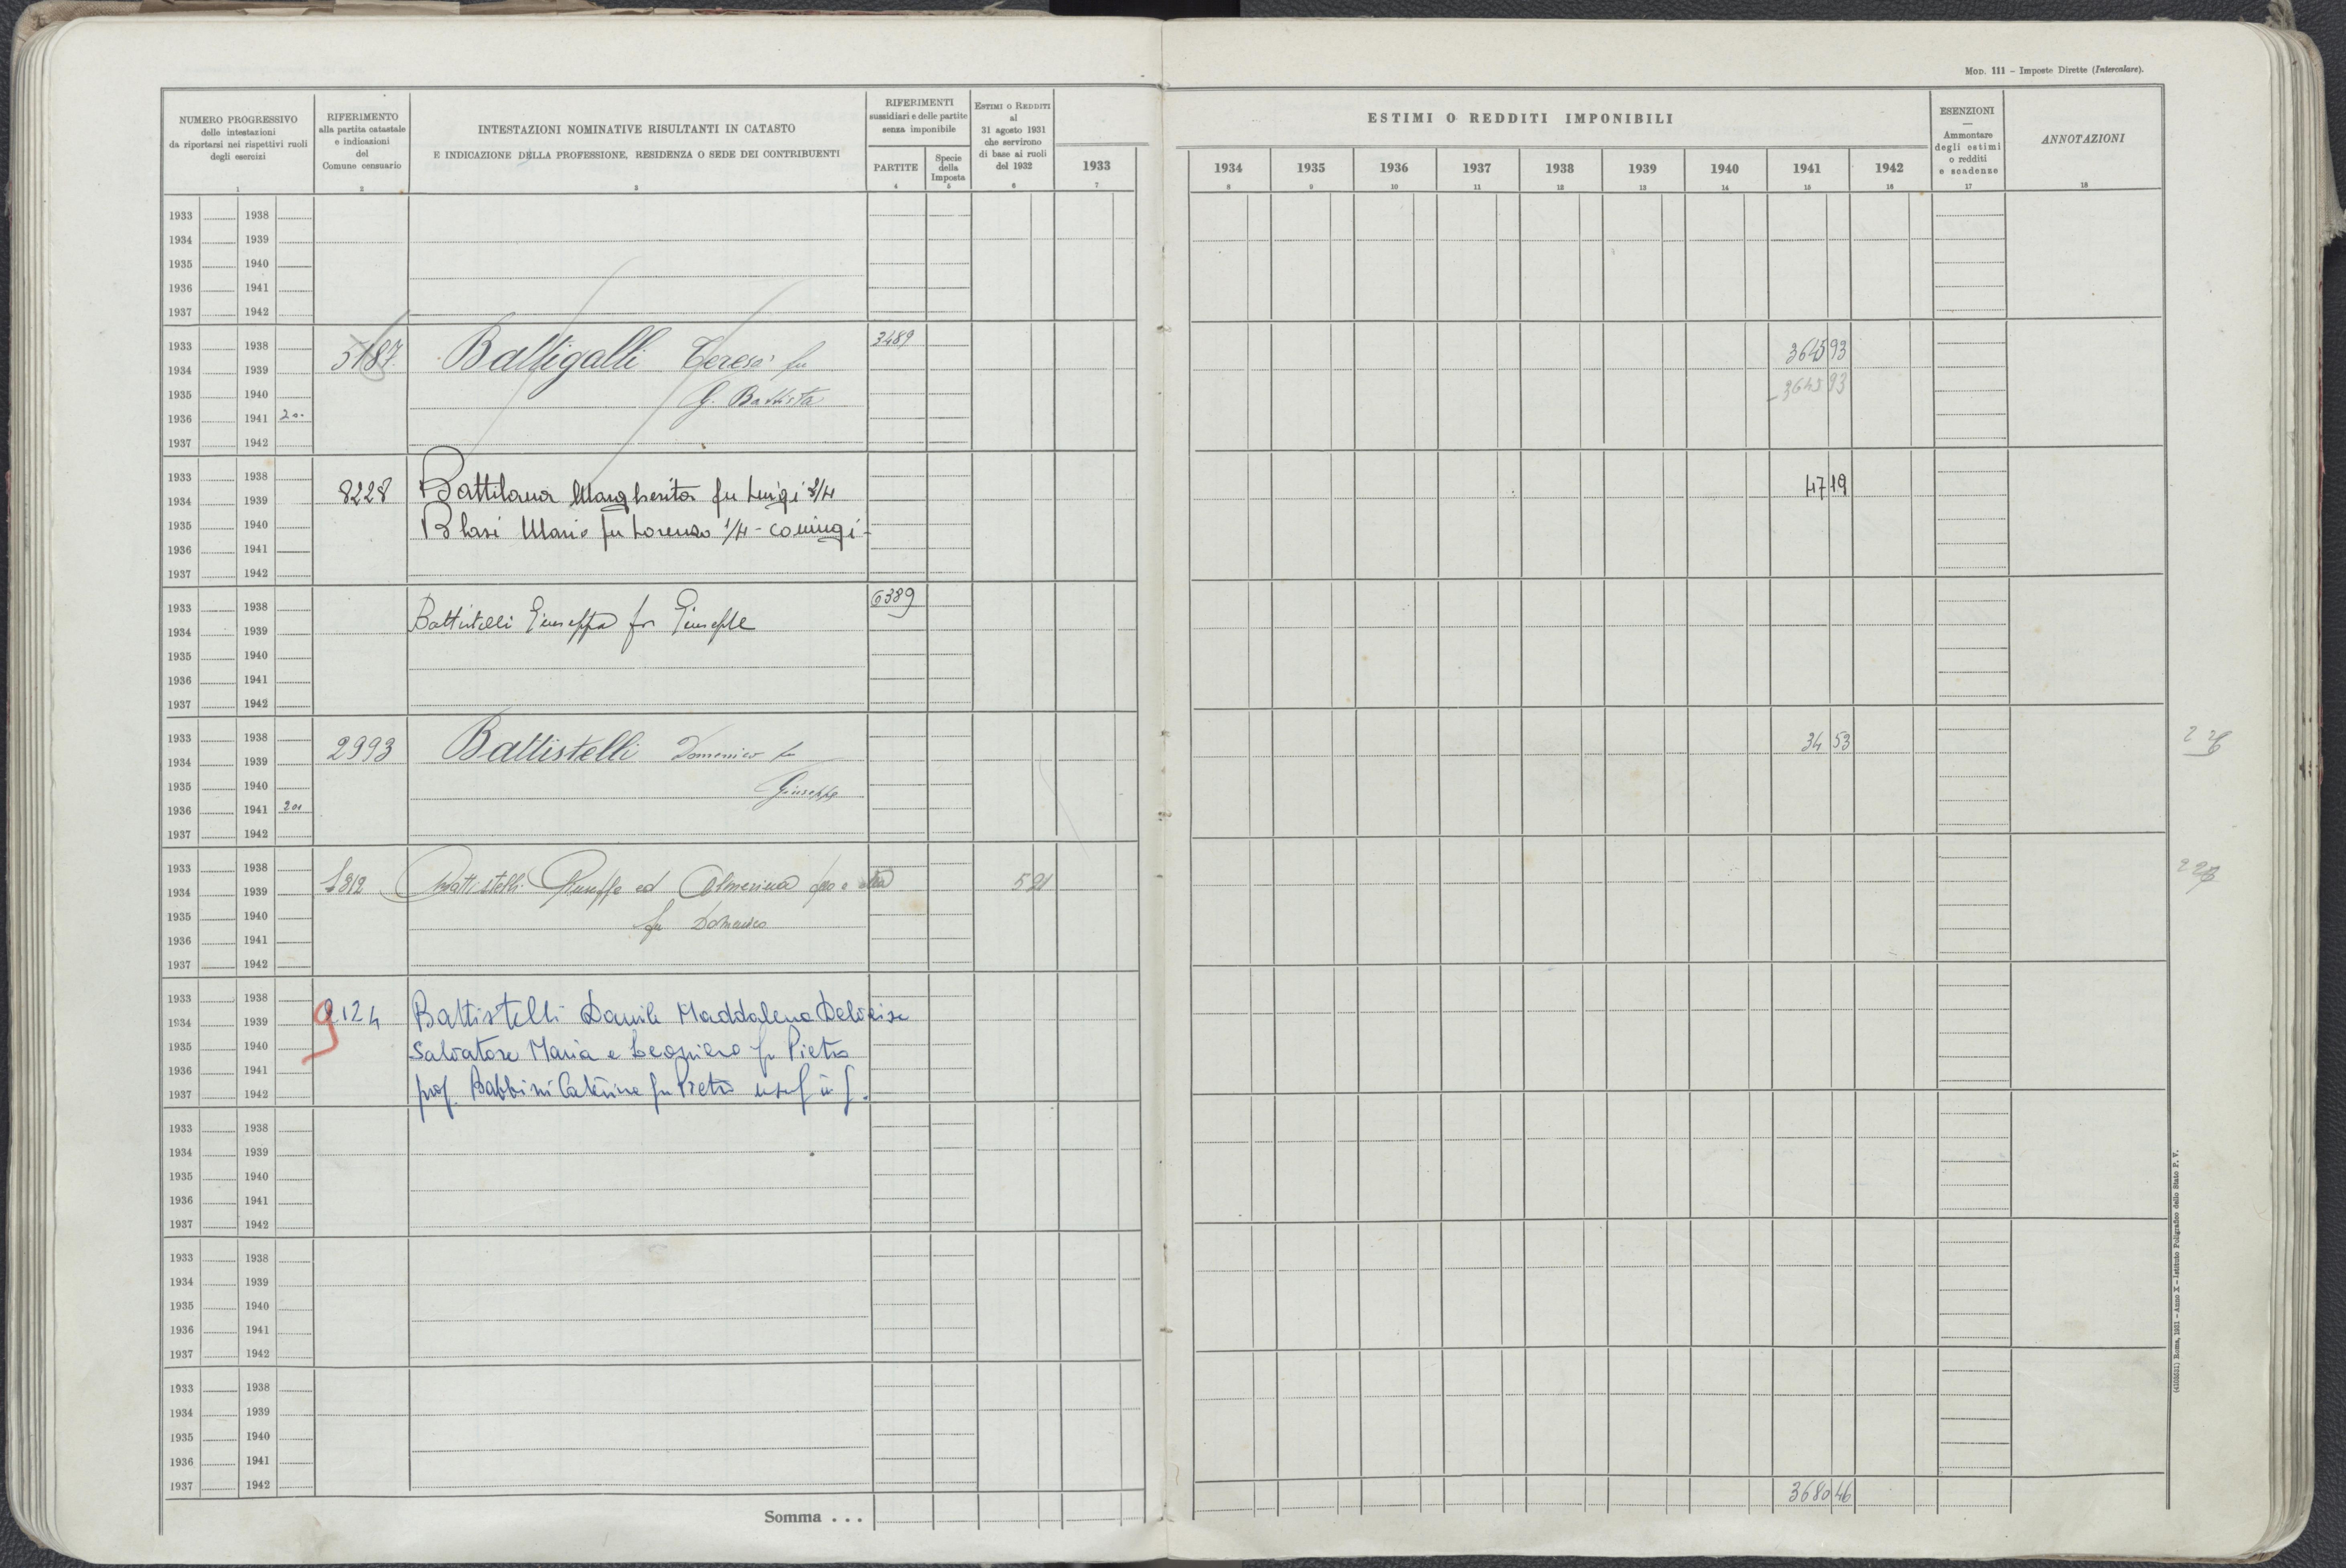 MOD. 111 – Imposte Dirette (Intercalare).
NUMERO PROGRESSIVO
delle intestazioni
da riportarsi nei rispettivi ruoli
degli esercizi
1
RIFERIMENTO
alla partita catastale
e indicazioni
del
Comune censuario
2
INTESTAZIONI NOMINATIVE RISULTANTI IN CATASTO
E INDICAZIONE DELLA PROFESSIONE, RESIDENZA O SEDE DEI CONTRIBUENTI
3
RIFERIMENTI
sussidiari e delle partite
senza imponibile
PARTITE
4
Specie
della
Imposta
5
ESTIMI O REDDITI
al
31 agosto 1931
che servirono
di base ai ruoli
del 1932
6
ESTIMI O REDDITI IMPONIBILI
1933 1934 1935 1936 1937 1938 1939 1940 1941 1942
7 8 9 10 11 12 13 14 15 16
ESENZIONI
—
Ammontare
degli estimi
o redditi
e scadenze
17
ANNOTAZIONI
18
1933 1938
1934 1939
1935 1940
1936 1941
1937 1942
1933 1938 3489
1934 1939 5187 Battigalli Teresa fu 3645 93
1935 1940 G. Battista -3645 93
1936 1941
1937 1942
1933 1938
1934 1939 8228 Battilana Margherita fu Luigi 3/4 47 19
1935 1940 Blasi Mario fu Lorenzo 1/4 - coniugi -
1936 1941
1937 1942
1933 1938 6389
1934 1939 Battistelli Giuseppa fu Giuseppe
1935 1940
1936 1941
1937 1942
1933 1938
1934 1939 2993 Battistelli Domenico fu 34 53
1935 1940 Giuseppe
1936 1941 201
1937 1942
1933 1938
1934 1939 1312 Battistelli Giuseppe ed 5 21
1935 1940 fu Domenico
1936 1941
1937 1942
1933 1938
1934 1939 9124 Battistelli Danile Maddalena
1935 1940 Salvatore Maria e fu Pietro
1936 1941
1937 1942 prop. Babbini Caterina fu Pietro usuf
1933 1938
1934 1939
1935 1940
1936 1941
1937 1942
1933 1938
1934 1939
1935 1940
1936 1941
1937 1942
1933 1938
1934 1939
1935 1940
1936 1941
1937 1942
3680 46
Somma . . .
(4105031) Roma, 1931 – Anno X – Istituto Poligrafico dello Stato P. V.